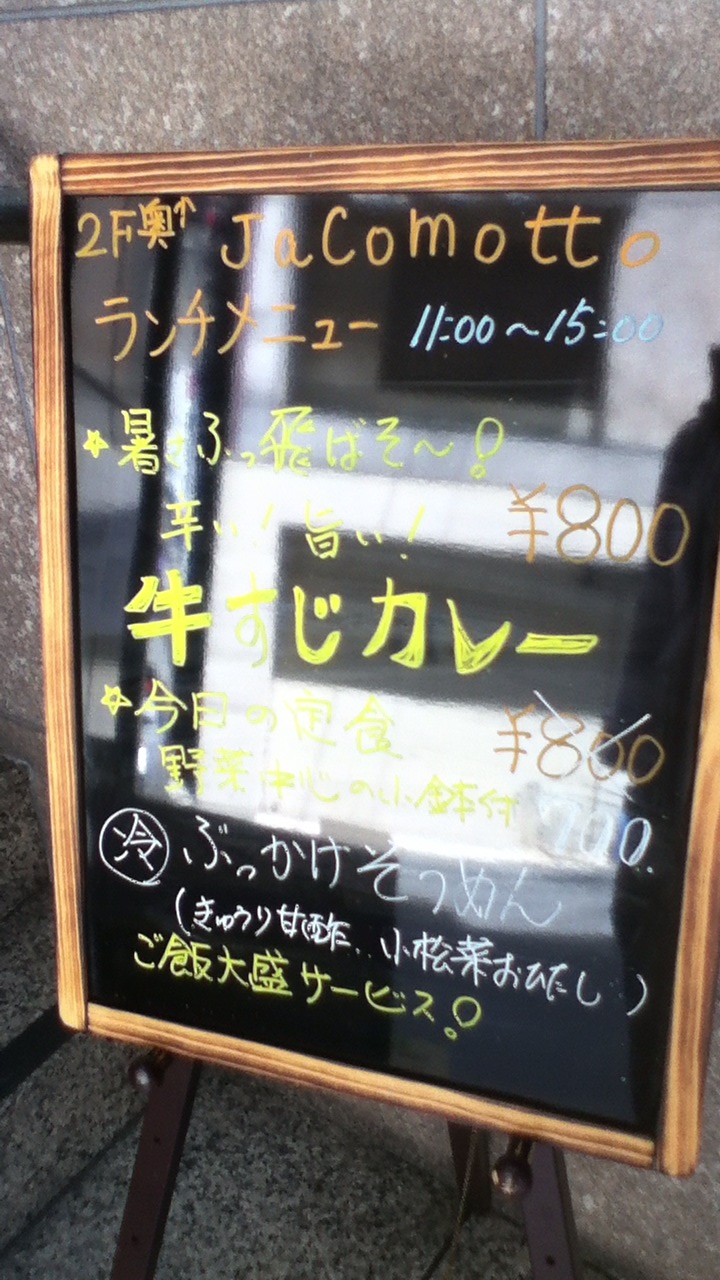 2F奥↑ JaComotto
ランチメニュー 11:00～15:00
☆暑さふっ飛ばそ～!
辛い!旨い! ¥800
牛すじカレー
☆今日の定食 ¥800
野菜中心の小鉢付 700.
冷 ぶっかけそうめん
(きゅうり甘酢、小松菜おひたし)
ご飯大盛サービス!